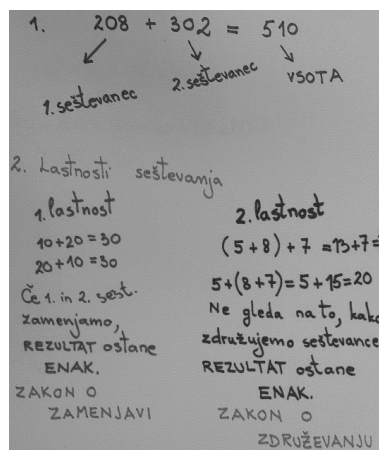 1. 208 + 302 = 510
1. seštevanec
2. seštevanec
VSOTA
2. Lastnosti seštevanja
1. lastnost
10+20=30
20+10=30
Če 1. in 2. sešt.
zamenjamo,
REZULTAT ostane
ENAK.
ZAKON O
ZAMENJAVI
2. lastnost
(5+8)+7=13+7=
5+(8+7)=5+15=20
Ne gleda na to,
združujemo seštevance
REZULTAT ostane
ENAK.
ZAKON O
ZDRUŽEVANJU